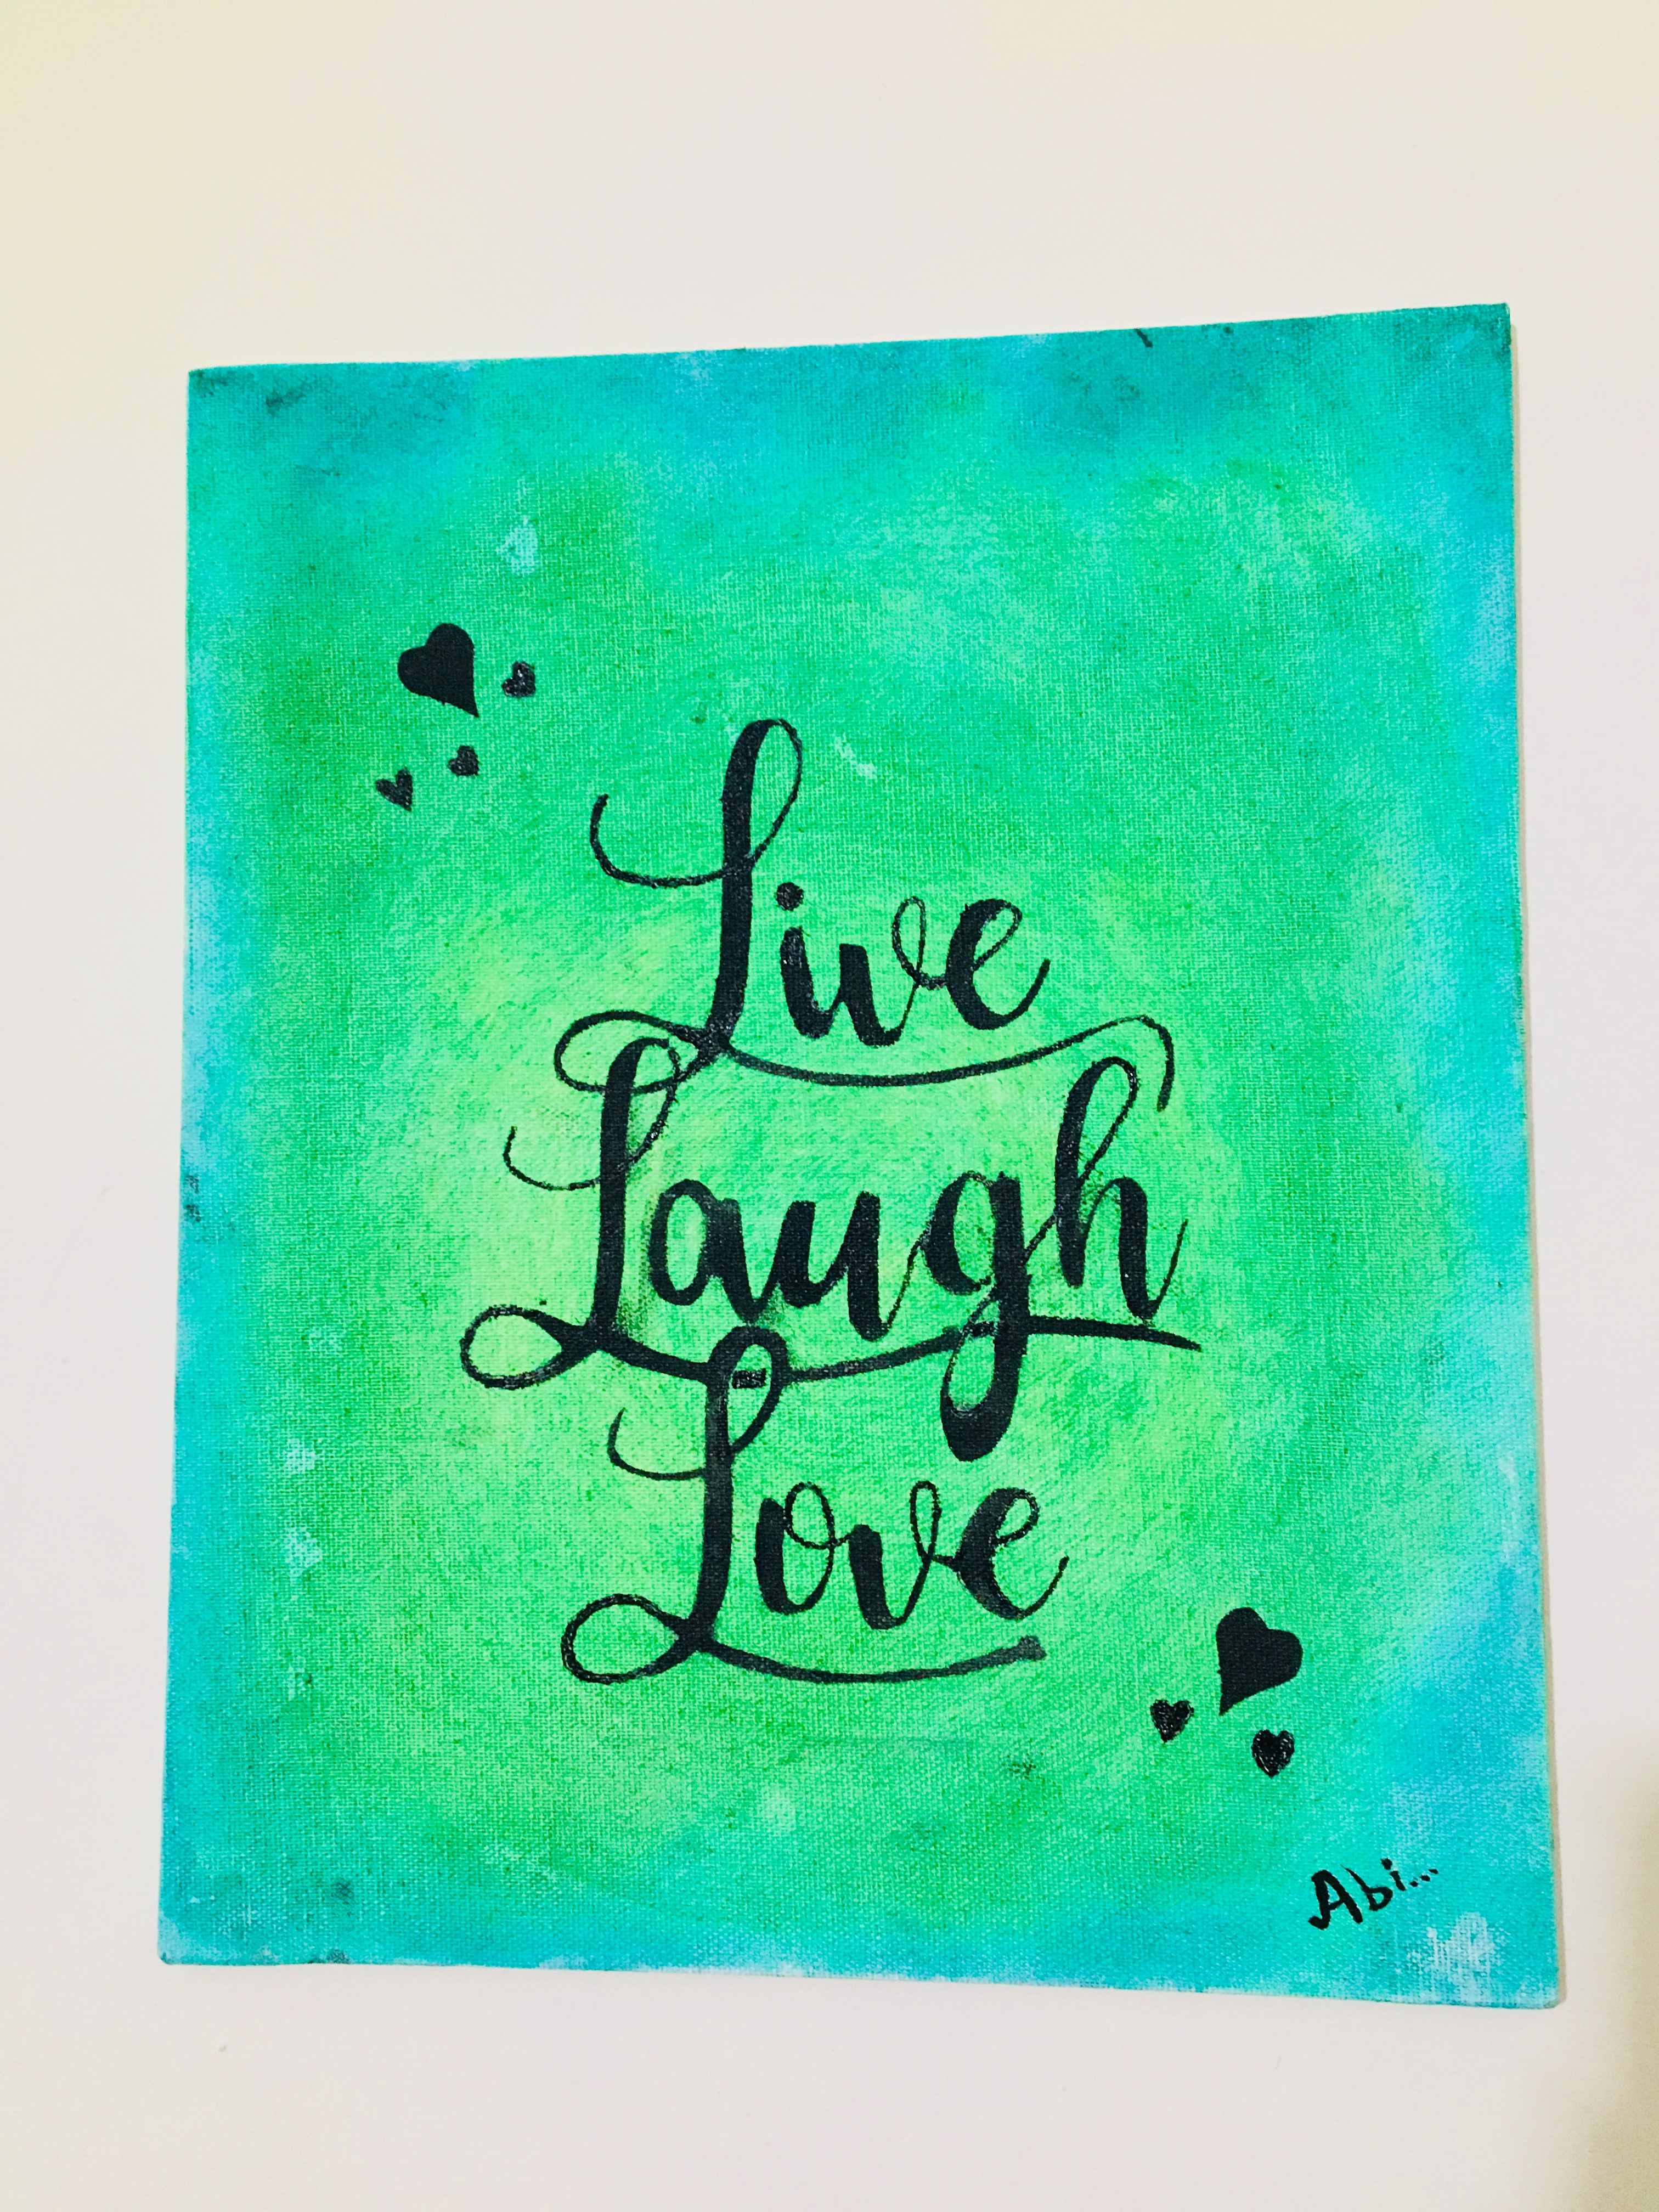 Live
Laugh
Love
Abi...